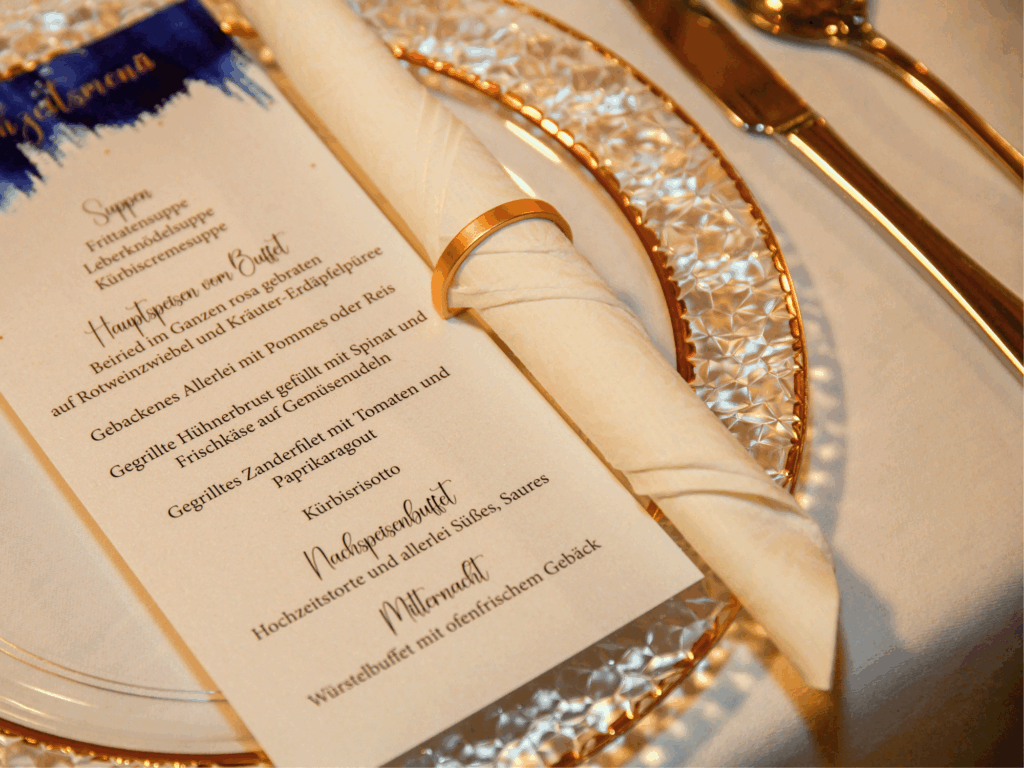 Suppen
Frittatensuppe
Leberknödelsuppe
Kürbiscremesuppe
Hauptspeisen vom Buffet
Beiried im Ganzen rosa gebraten
auf Rotweinzwiebel und Kräuter-Erdäpfelpüree
Gebackenes Allerlei mit Pommes oder Reis
Gegrillte Hühnerbrust gefüllt mit Spinat und
Frischkäse auf Gemüsenudeln
Gegrilltes Zanderfilet mit Tomaten und
Paprikaragout
Kürbisrisotto
Nachspeisenbuffet
Hochzeitstorte und allerlei Süßes, Saures
Mitternacht
Würstelbuffet mit ofenfrischem Gebäck